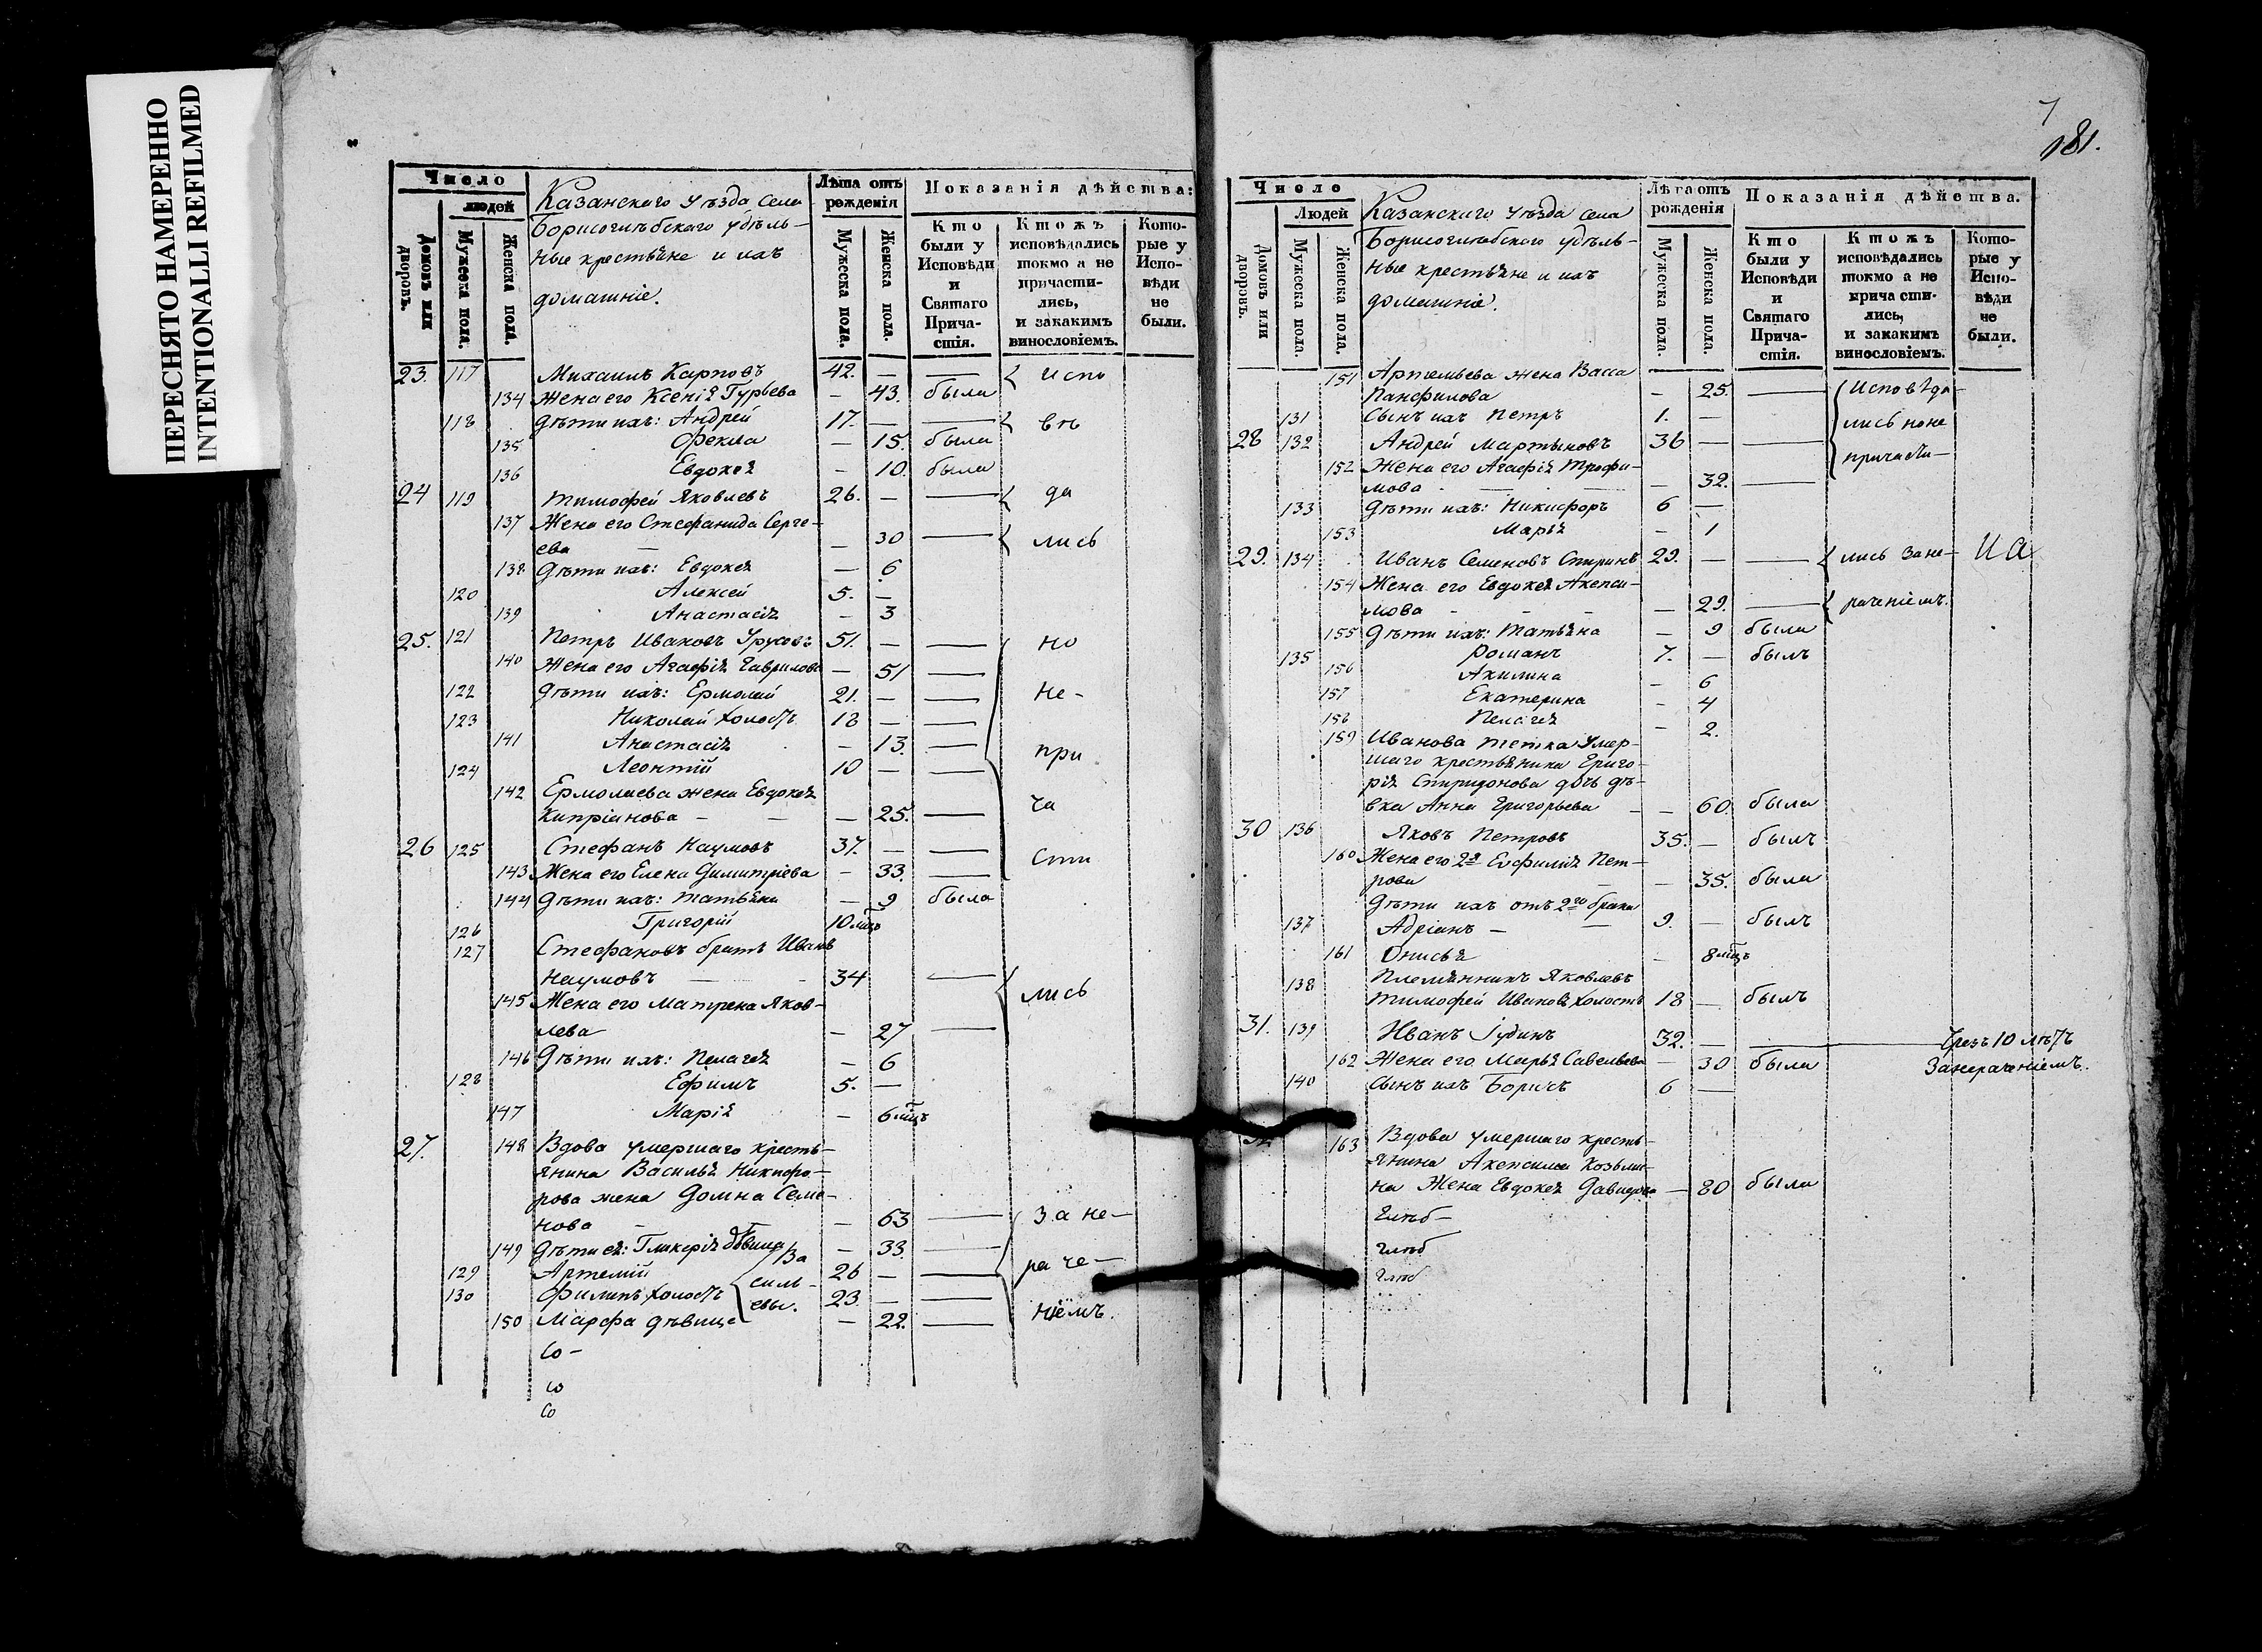 ПЕРЕСНЯТО НАМЕРЕННО
INTENTIONALLI REFILMED
Число
людей
Домовъ или дворовъ.
Мужеска пола.
Женска пола.
Казанскаго Уѣзда Села
Борисоглѣбскаго удѣль-
ные крестьяне и ихъ
домашніе.
Лѣта отъ рожденія
Мужеска пола.
Женска пола.
Показанія дѣйства:
Кто были у Исповѣди и Святаго Причастія.
Ктожъ исповѣдались токмо а не причастились, и закакимъ винословіемъ.
Которые у Исповѣди не были.
23. 117 Михаилъ Карповъ 42. — — Испо
134 Жена его Ксенія Гурьева — 43. была
118 Дѣти ихъ: Андрей 17. — — вѣ
135 Фекла — 15. была
136 Евдокея — 10. была
24 119 Тимофей Яковлевъ 26. — — да
137 Жена его Стефанида Серге-
ева — — 30 — лись
138 Дѣти ихъ: Евдокея — 6
120 Алексей 5. —
139 Анастасія — 3
25. 121 Петръ Ивановъ Урусовъ 51. — — но
140 Жена его Агафія Гаврилова — 51 —
122 Дѣти ихъ: Ермолай 21. — — не-
123 Николай холостъ 18 — —
141 Анастасія — 13. — при
124 Леонтій 10 — —
142 Ермолаева жена Евдокея
Кипріанова — — — 25. — ча
26 125 Стефанъ Наумовъ 37. — — сти
143 Жена его Елена Димитріева — 33. —
144 Дѣти ихъ: Татьяна — 9 была
126 Григорій 10 мцъ
127 Стефановъ братъ Иванъ
Наумовъ — — 34 — лись
145 Жена его Матрена Яков-
лева — 27 —
146 Дѣти ихъ: Пелагея — 6
128 Ефимъ 5. —
147 Марія — 6 мцъ
27. 148 Вдова умершаго кресть-
янина Василья Никифо-
рова жена Домна Семе-
нова — — — 63 — За не-
149 Дѣти ея: Гликерія дѣвица — 33. —
129 Артемій 26 — — раче-
130 Филипъ холостъ Ва силь- евы. 23. — —
150 Марфа дѣвица — 22. — ніемъ.
Со-
Со
Со
7
181.
Число
Людей
Домовъ или дворовъ.
Мужеска пола.
Женска пола.
Казанскаго Уѣзда Села
Борисоглѣбскаго удѣль-
ные крестьяне и ихъ
домашніе.
Лѣта отъ рожденія
Мужеска пола.
Женска пола.
Показанія дѣйства.
Кто были у Исповѣди и Святаго Причастія.
Ктожъ исповѣдались токмо а не причастились, и закакимъ винословіемъ.
Которые у Исповѣди не были.
151 Артемьева жена Васса
Панфилова — 25. — Исповѣда-
131 Сынъ ихъ Петръ 1. — лись но не
28 132 Андрей Мартыновъ 36 — —
152 Жена его Агафія Трофи- причасти-
мова — — — 32. —
133 Дѣти ихъ: Никифоръ 6 —
153 Марья — 1
29. 134 Иванъ Семеновъ Спиринъ 29. — — лись За не- на
154 Жена его Евдокея Акепси-
мова — — — — 29. — раченіемъ.
155 Дѣти ихъ: Татьяна — 9 была
135 Романъ 7. — былъ
156 Акилина — 6
157 Екатерина — 4
158 Пелагея — 2.
159 Иванова тетка Умер-
шаго крестьянина Григо-
рія Спиридонова дочь дѣ-
вка Анна Григорьева — — 60. была
30 136 Яковъ Петровъ 35. — былъ
160 Жена его 2я Евфимія Пет-
рова — — 35. была
Дѣти ихъ отъ 2го брака
137 Адріанъ — — 9. — былъ
161 Онисья — 8 мцъ
138 Племянникъ Яковлевъ
Тимофей Ивановъ холостъ 18 — былъ
31. 139 Иванъ Іудинъ 32. — — Чрезъ 10 лѣтъ
162 Жена его Марья Савельева — 30 была За нераченіемъ.
140 Сынъ ихъ Борисъ 6 —
32 163 Вдова умершаго кресть-
янина Акепсима Козьми-
на Жена Евдокея Давидова — 80 была
Глѣб-
глѣб
глѣб